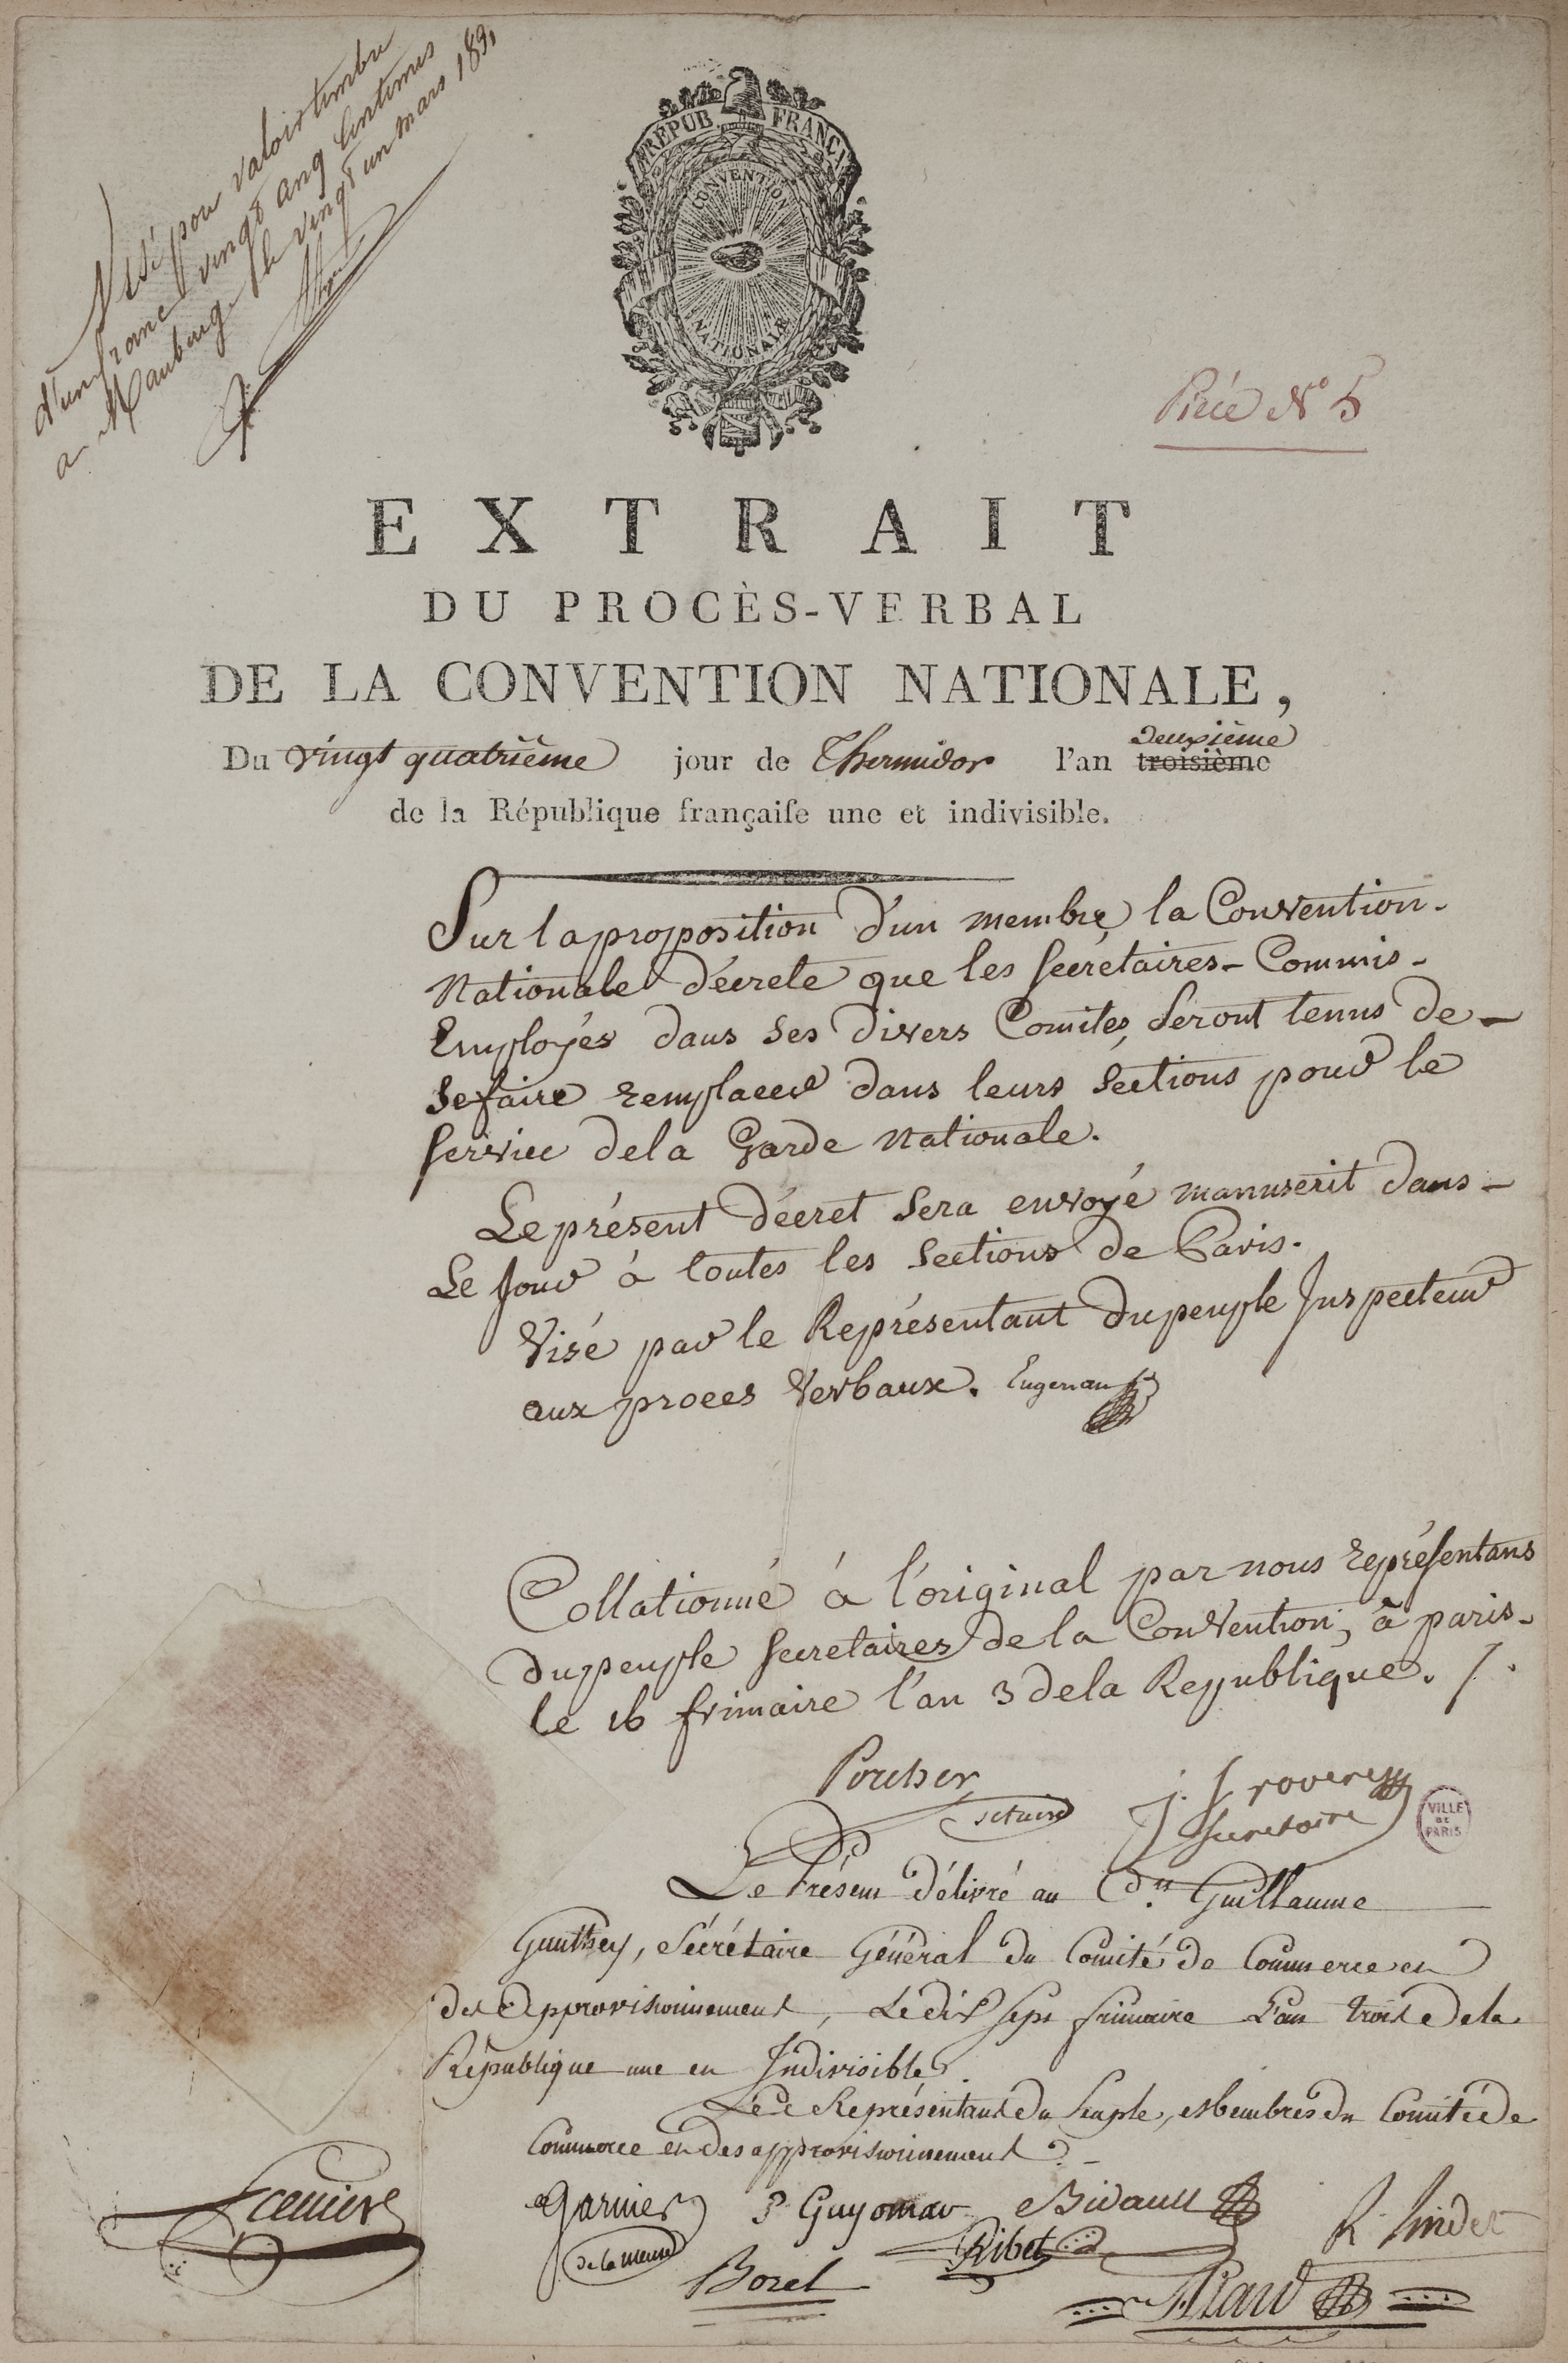 Visé pour valoir timbre
d'un franc vingt cinq centimes
a Maubeuge le vingt un mars 189
RÉPUB FRANÇA
CONVENTION
NATIONALE
Piéce N° 5
EXTRAIT
DU PROCÈS-VERBAL
DE LA CONVENTION NATIONALE,
Deuxième
Du vingt quatrième jour de Thermidor l'an troisième
de la République françaiſe une et indivisible.
Sur la proposition d'un membre, la Convention
Nationale décrete que les secrétaires-Commis
Employés dans ses divers Comités, seront tenus de
se faire remplacer dans leurs sections pour le
service de la Garde Nationale.
Le présent décret sera envoyé manuscrit dans
Le Jour à toutes les Sections de Paris.
Visé par le Représentant du peuple Inspecteur
aux proces Verbaux. Enjenau
Collationné à l'original par nous représentans
du peuple secretaires de la Convention, à paris
le 16 frimaire l'an 3 de la République.
Porcher J. S. rovere
setaire secretaire
VILLE
DE
PARIS
Le Présent délivré au Cen. Guillaume
Gunthey, Sécrétaire Général du Comité de Commerce et
des Approvisionnement, Le dix sept frimaire L'an trois de la
République une et Indivisible.
Les Représentans du Peuple, Membres du Comité de
Commerce et des approvisionnement
Garnier P Guyomar Bidault R. Lindet
de la meuse Ribet
Borel Piard